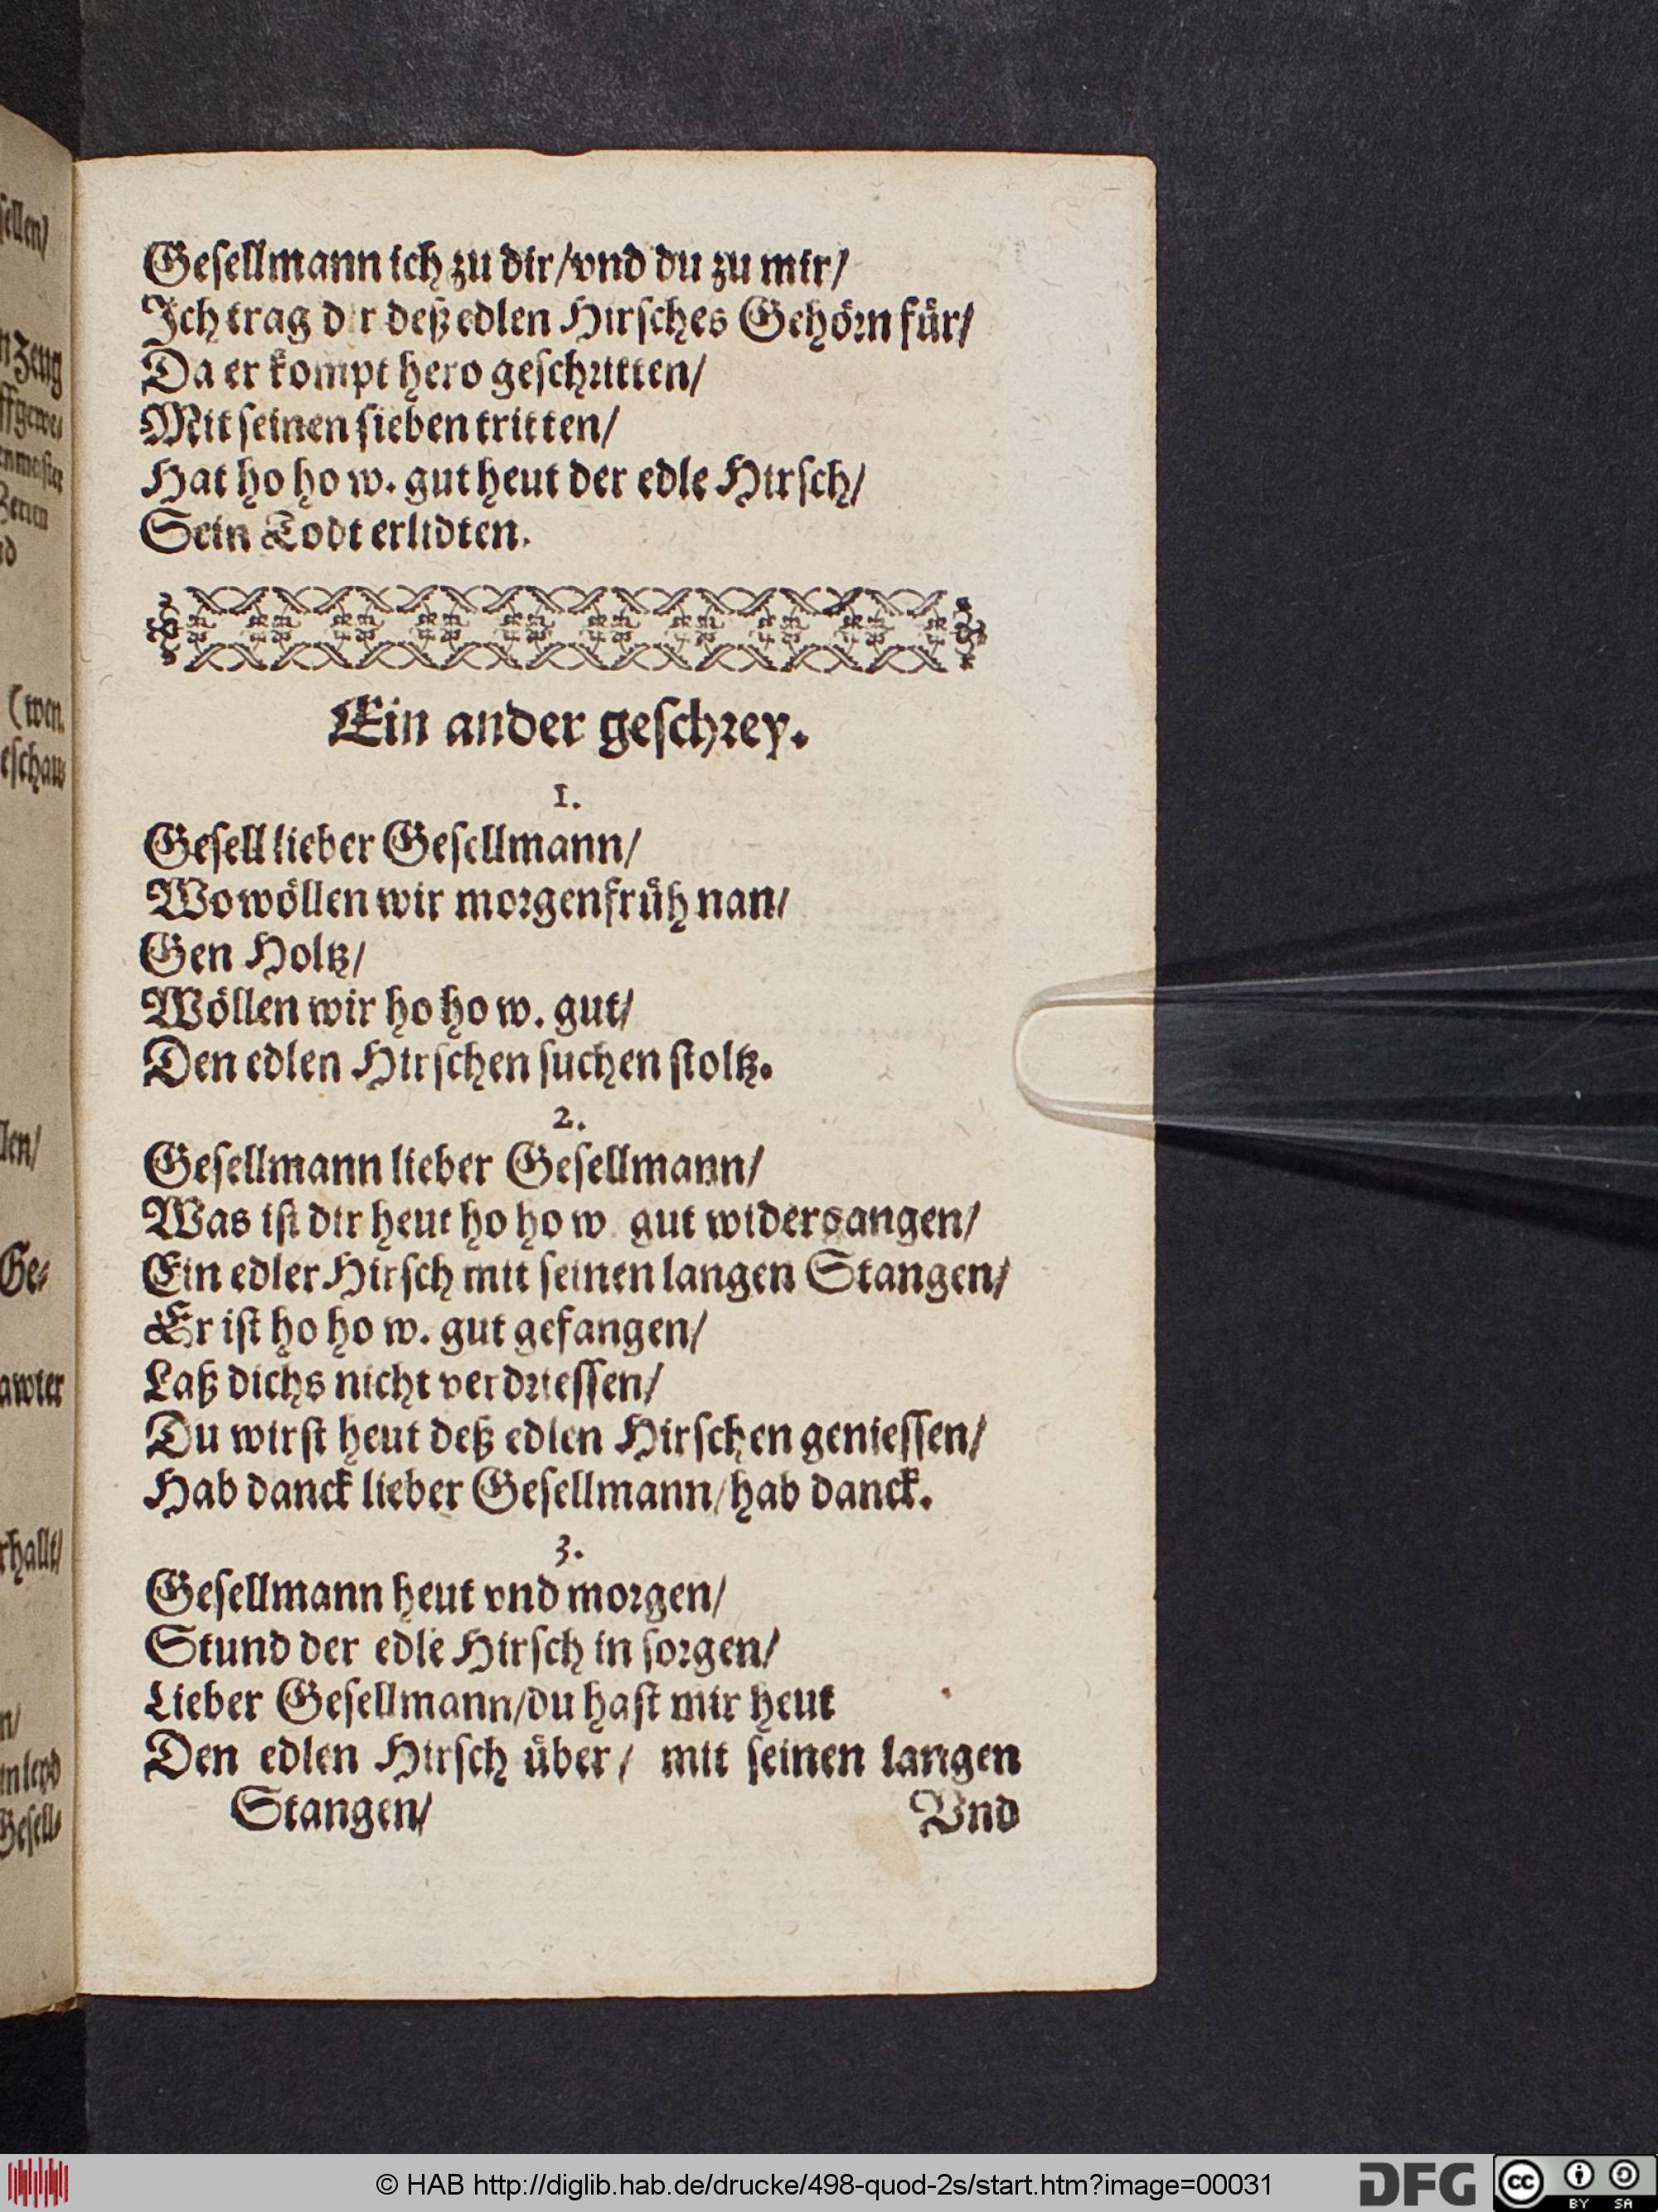 Geſellmann ich zu dir/ vnd du zu mir/
Ich trag dir deß edlen Hirſches Gehoͤrn fuͤr/
Da er kompt hero geſchritten/
Mit ſeinen ſieben tritten/
Hat ho ho w. gut heut der edle Hirſch/
Sein Todt erlidten.
Ein ander geſchrey.
1.
Geſell lieber Geſellmann/
Wo woͤllen wir morgen fruͤh nan/
Gen Holtz/
Woͤllen wir ho ho w. gut/
Den edlen Hirſchen ſuchen ſtoltz.
2.
Geſellmann lieber Geſellmann/
Was iſt dir heut ho ho w gut widergangen/
Ein edler Hirſch mit ſeinen langen Stangen/
Er iſt ho ho w. gut gefangen/
Laß dichs nicht verdrieſſen/
Du wirſt heut deß edlen Hirſchen genieſſen/
Hab danck lieber Geſellmann/ hab danck.
3.
Geſellmann heut vnd morgen/
Stund der edle Hirſch in ſorgen/
Lieber Geſellmann/ du haſt mir heut
Den edlen Hirſch uͤber/ mit ſeinen langen
Stangen/ Vnd
© HAB http://diglib.hab.de/drucke/498-quod-2s/start.htm?image=00031
DFG
cc
BY SA